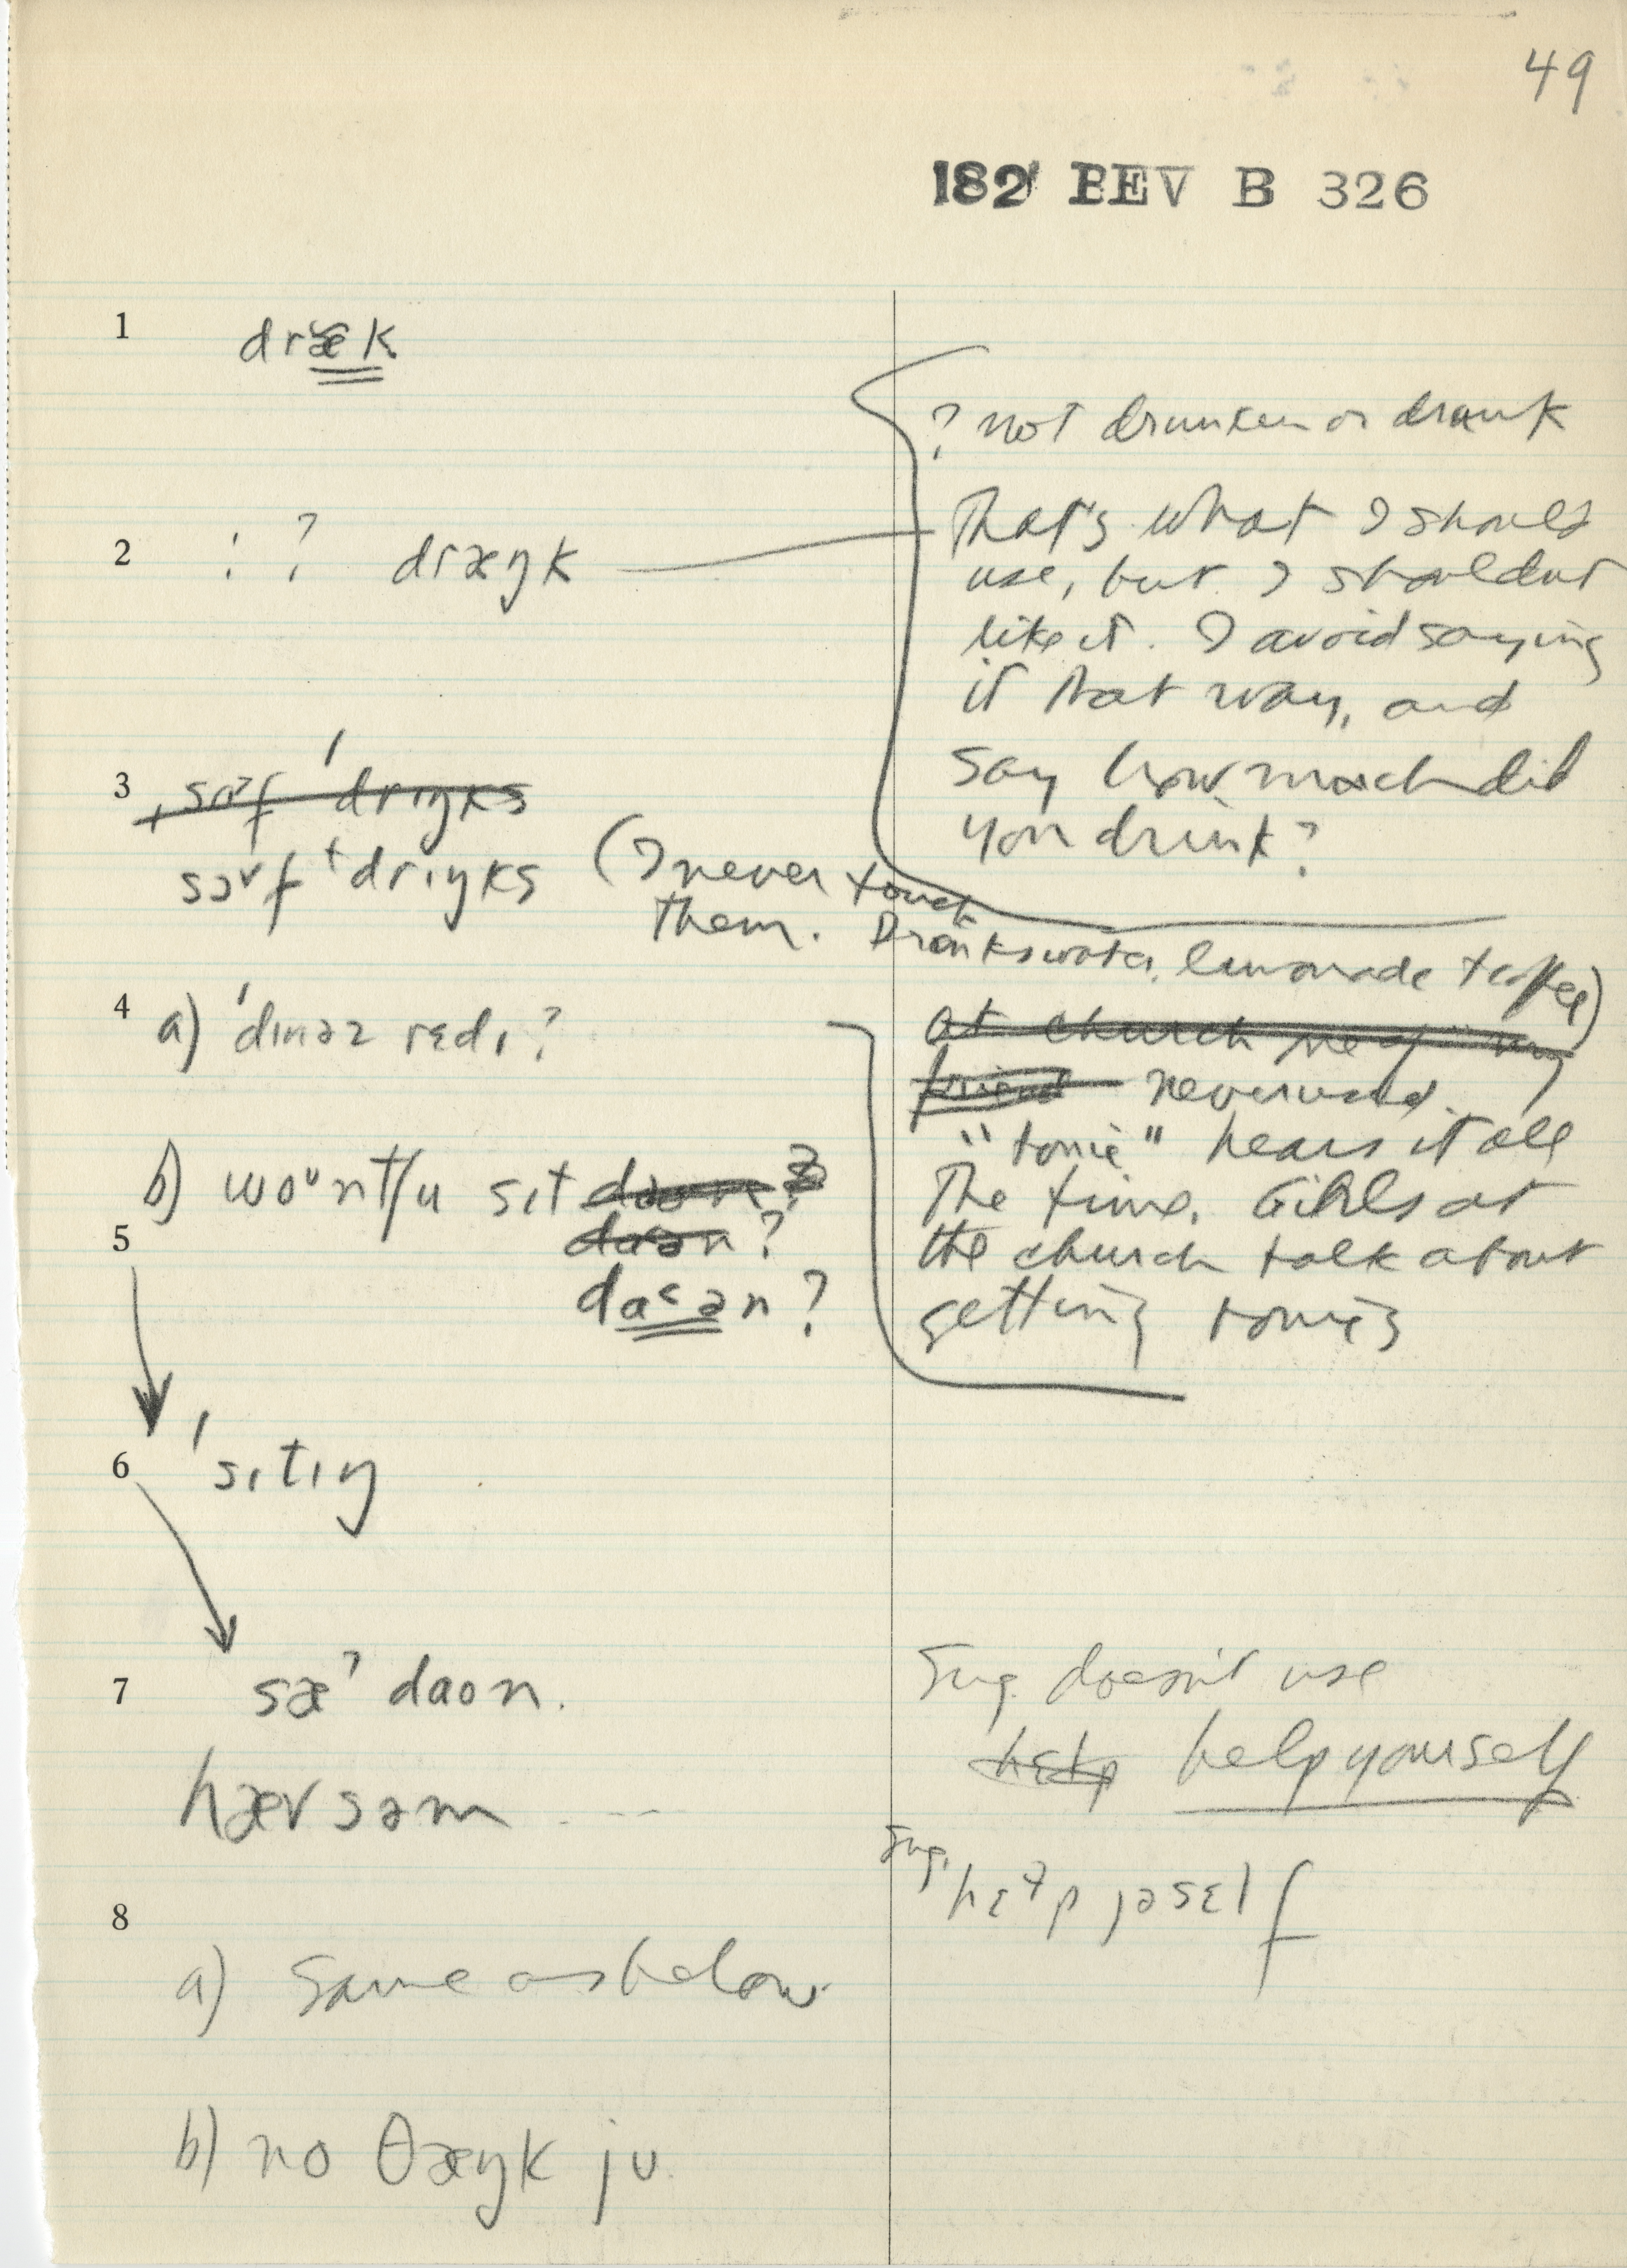 49
182 BEV B 326
1 dræ̃k
? not drunken or drank
2 : ? dræŋk
That's what I should
use, but I shouldn't
like it. I avoid saying
it that way, and
say how much did
you drink?
3 ˌsɒf ˈdrɪŋks
sɔ˅f ˈdrɪŋks (I never touch
them. Drinks water, lemonade + coffee)
4 a) ˈdɪnəz rɛdɪ?
at church
friend never used
"tonic" hears it all
the time. Girls at
the church talk about
getting tonics
b) woᵘntʃu sɪt
5 daən?
da˂ən?
6 ˈsɪtɪŋ
7 sæˀ daon.
Sug. doesn't use
help help yourself
hæv səm . --
Sug. hɛɫp jəsɛlf
8
a) Same as below
b) no θæŋk ju